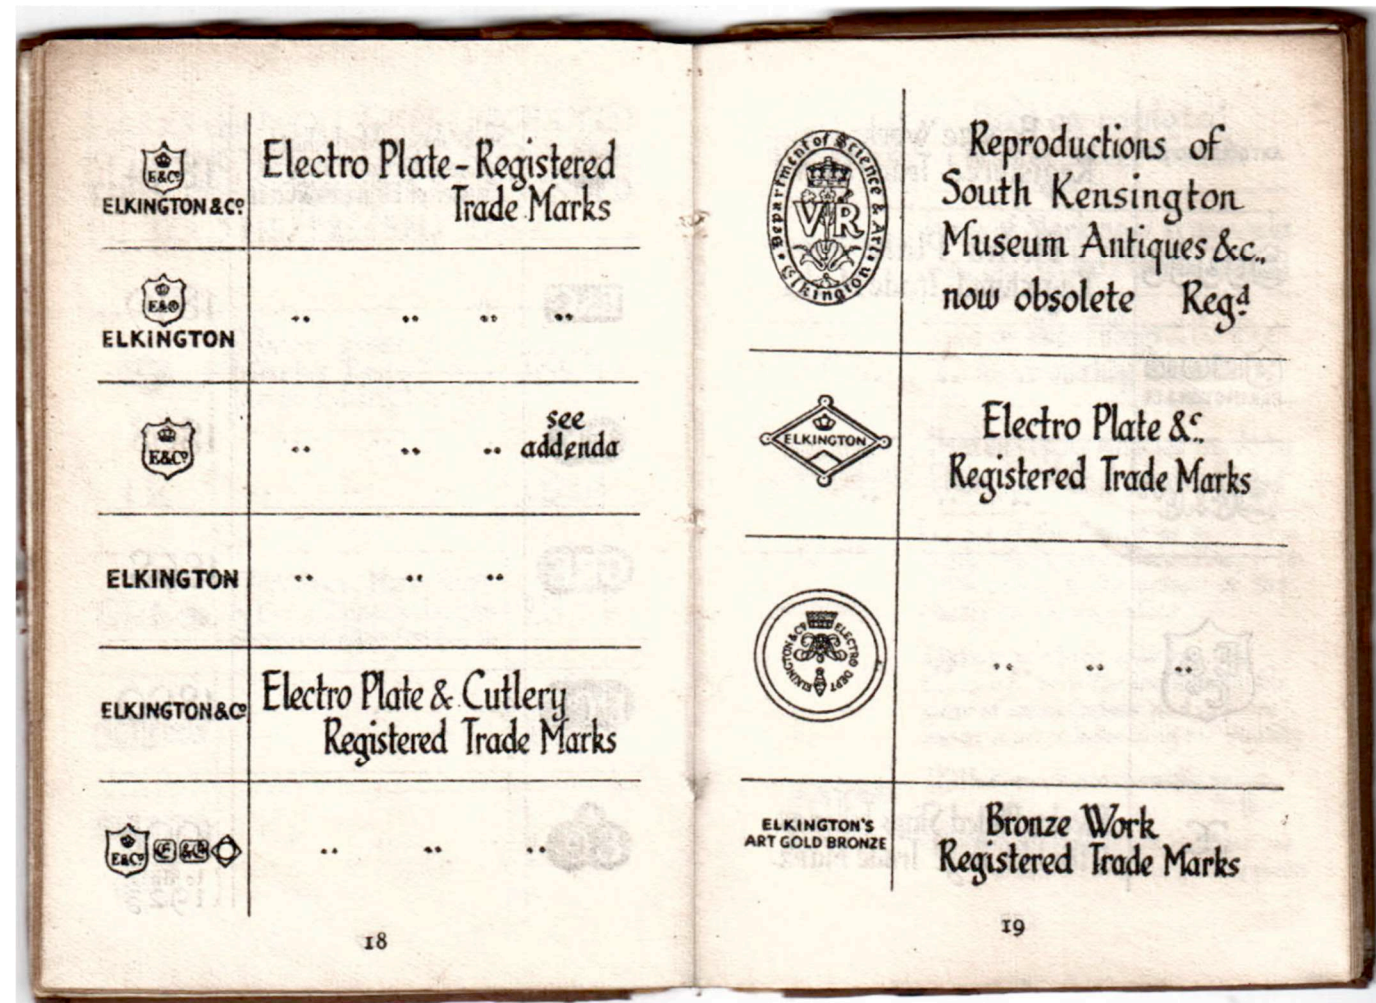 E&Cº
ELKINGTON & Cº
Electro Plate - Registered
Trade Marks
ELKINGTON
.. .. .. ..
E&Cº
.. .. .. see
addenda
ELKINGTON
.. .. ..
ELKINGTON & Cº
Electro Plate & Cutlery
Registered Trade Marks
E&Cº E &Cº
.. .. ..
18
Department of Science & Art
VR
Elkington
Reproductions of
South Kensington
Museum Antiques &c.,
now obsolete Regd
ELKINGTON
Electro Plate &c.
Registered Trade Marks
ELKINGTON & Cº ELECTRO DEPT
.. .. ..
ELKINGTON'S
ART GOLD BRONZE
Bronze Work
Registered Trade Marks
19